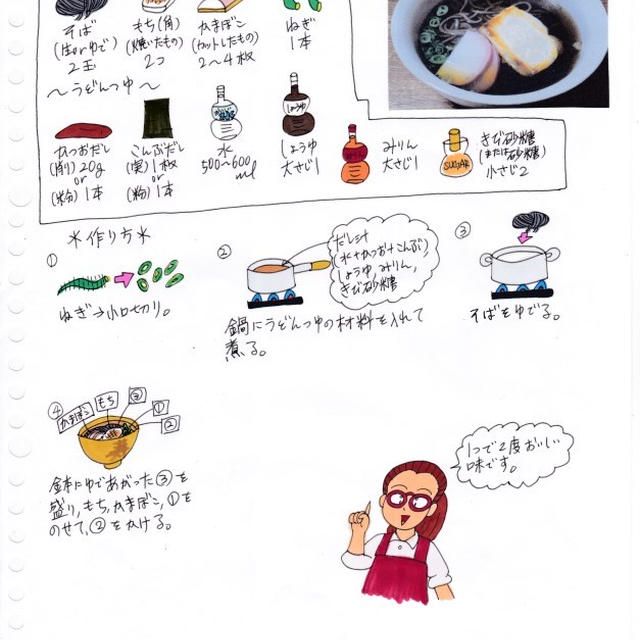 そば
(生orゆで)
2玉
もち(角)
(焼いたもの)
2コ
かまぼこ
(カットしたもの)
2〜4枚
ねぎ
1本
〜うどんつゆ〜
かつおだし
(削り)20g
or
(粉)1本
こんぶだし
(実)1枚
or
(粉)1本
水
500〜600
ml
しょうゆ
しょうゆ
大さじ1
みりん
大さじ1
SUGAR
きび砂糖
(または砂糖)
小さじ2
*作り方*
①
ねぎ→小口切り。
②
だし汁
(水+かつお+こんぶ)
しょうゆ、みりん、
きび砂糖
鍋にうどんつゆの材料を入れて
煮る。
③
そばをゆでる。
④
かまぼこ
もち
③
①
②
鉢にゆであがった③を
盛り、もち、かまぼこ、①を
のせて、②をかける。
1つで2度おいしい
味です。